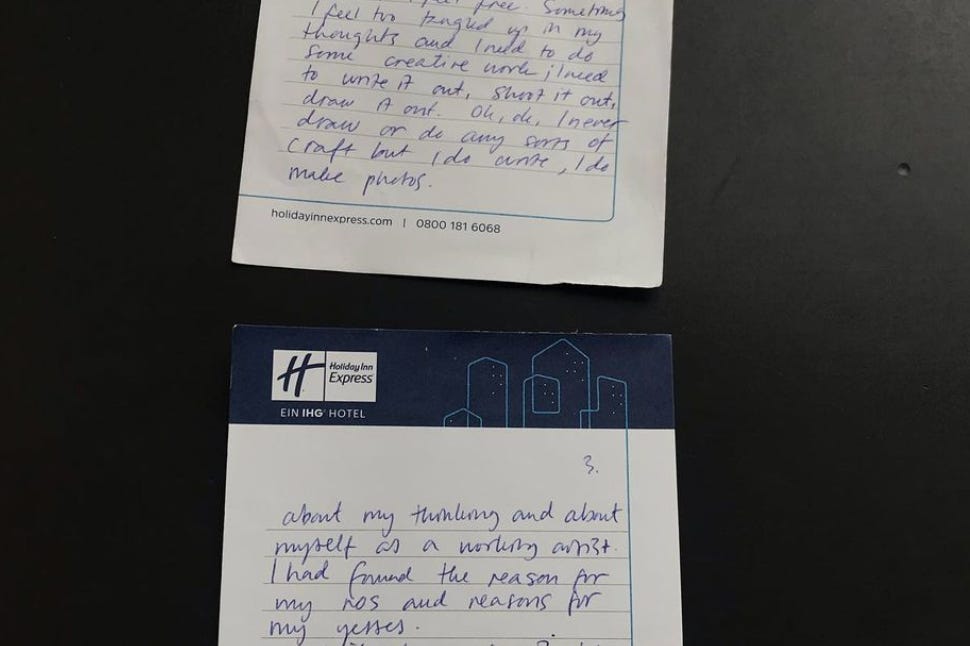 feel free. Sometimes
I feel too tangled up in my
thoughts and I need to do
some creative work; I need
to write it out, shoot it out,
draw it out. Ok, ok, I never
draw or do any sorts of
craft but I do write, I do
make photos.
holidayinnexpress.com | 0800 181 6068
H Holiday Inn
Express
EIN IHG® HOTEL
3.
about my thinking and about
myself as a working artist.
I had found the reason for
my nos and reasons for
my yesses.